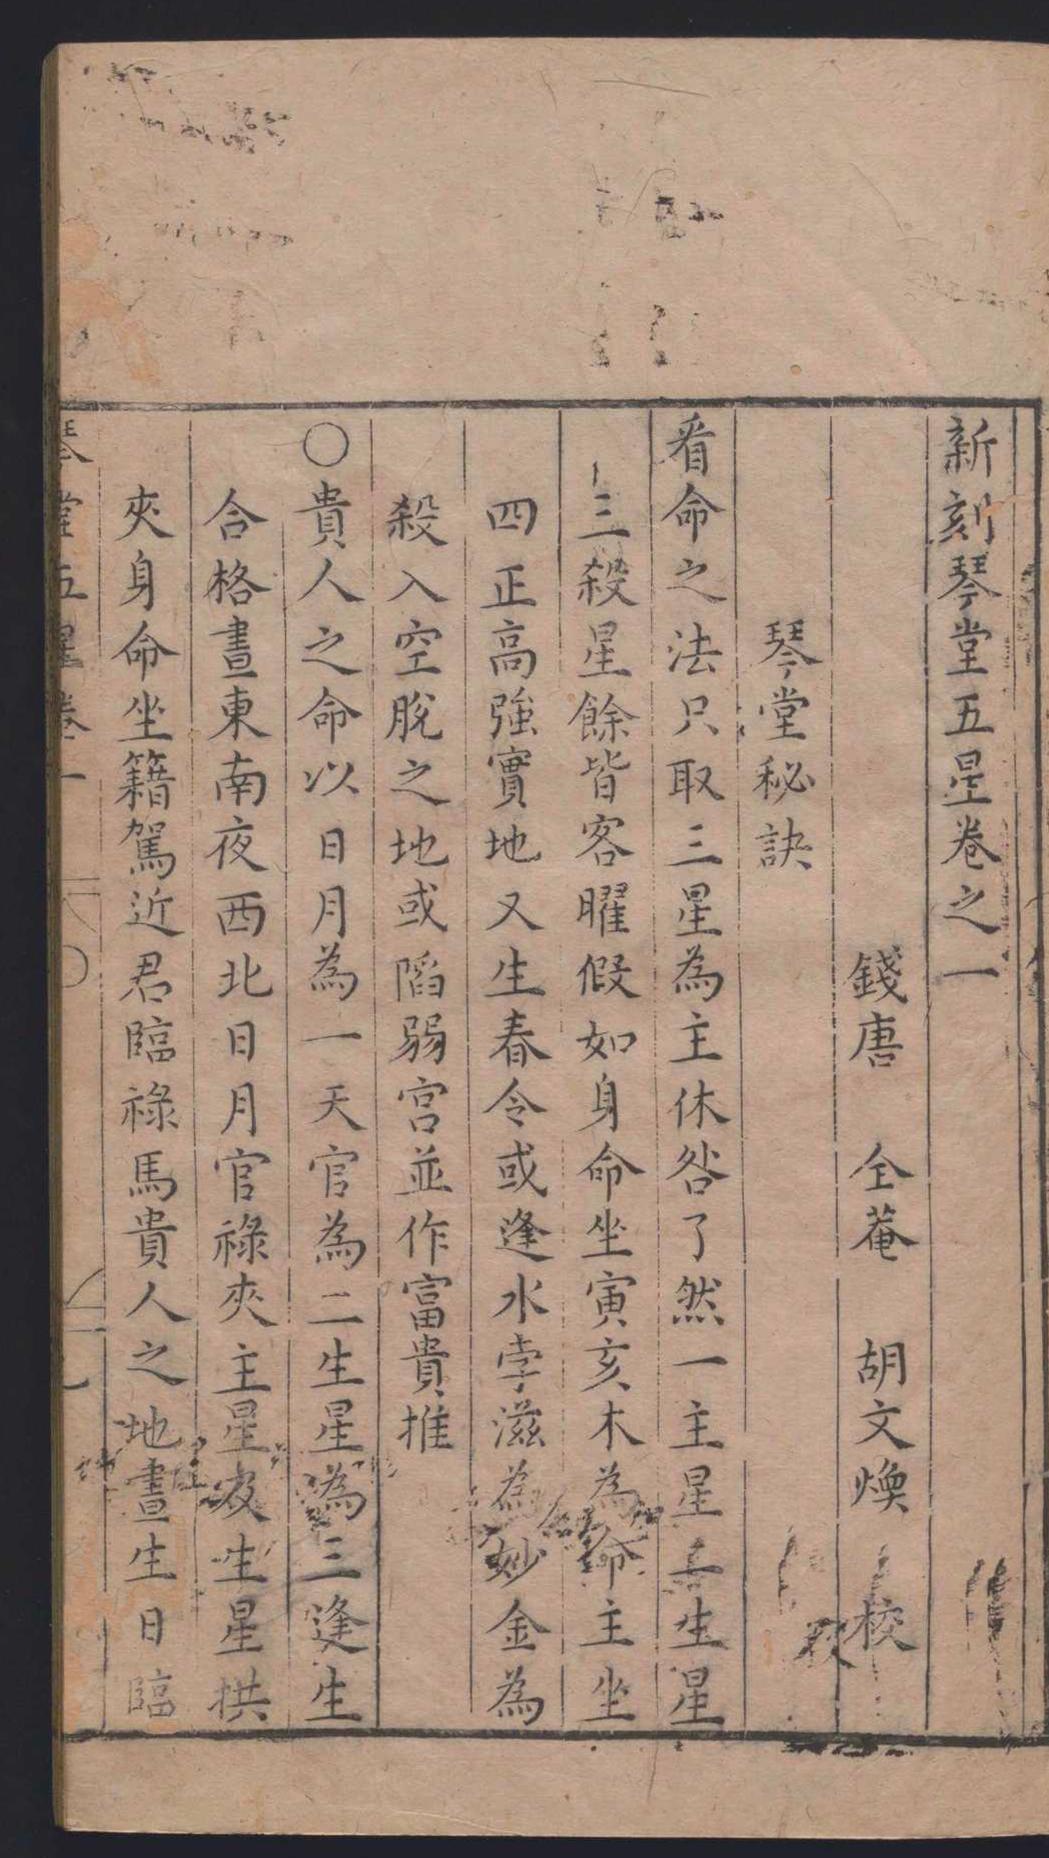 新刻琴堂五星卷之一
錢唐 仝菴 胡文煥 校
琴堂秘訣
看命之法只取三星為主休咎了然一主星二生星
三殺星餘皆客曜假如身命坐寅亥木為命主坐
四正高強實地又生春令或逢水孛滋為妙金為
殺入空脫之地或陷弱宮並作富貴推
○貴人之命以日月為一天官為二生星為三逢生
合格晝東南夜西北日月官祿夾主星及生星拱
夾身命坐籍駕近君臨祿馬貴人之地晝生日臨
琴堂五星卷一